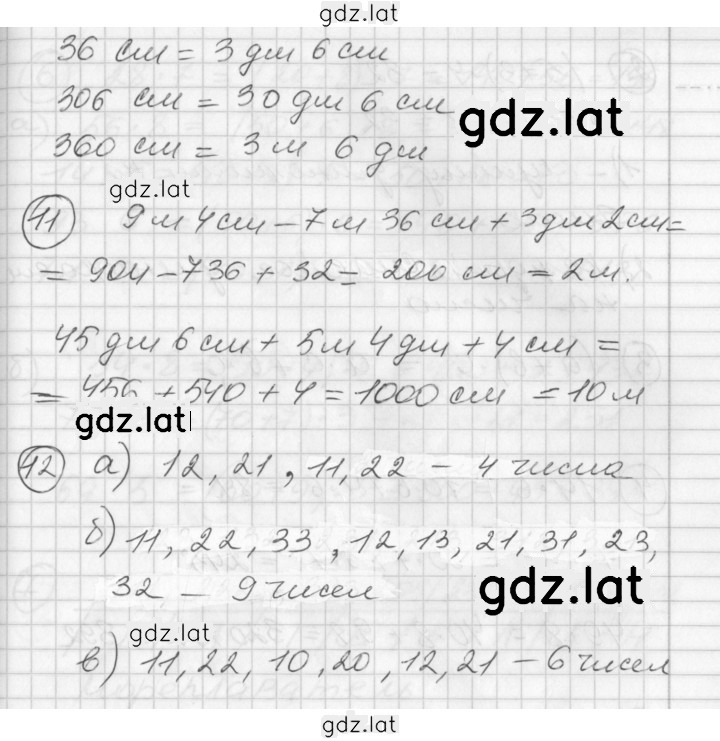 gdz.lat
36 см = 3 дм 6 см
306 см = 30 дм 6 см
gdz.lat
360 см = 3 м 6 дм
gdz.lat
11 9 м 4 см − 7 м 36 см + 3 дм 2 см =
= 904 − 736 + 32 = 200 см = 2 м.
45 дм 6 см + 5 м 4 дм + 4 см =
= 456 + 540 + 4 = 1000 см = 10 м
gdz.lat
12 а) 12, 21, 11, 22 − 4 числа
б) 11, 22, 33, 12, 13, 21, 31, 23,
32 − 9 чисел
gdz.lat
gdz.lat
в) 11, 22, 10, 20, 12, 21 − 6 чисел
gdz.lat